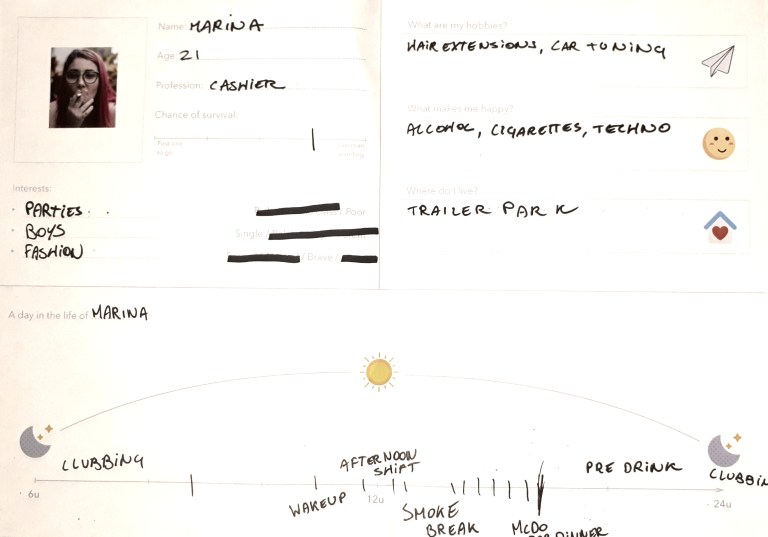 Name: MARINA
Age: 21
Profession: CASHIER
Chance of survival:
Interests:
• PARTIES
• BOYS
• FASHION
/ Poor
Single /
/ Brave /
What are my hobbies?
HAIR EXTENSIONS, CAR TUNING
What makes me happy?
ALCOHOL, CIGARETTES, TECHNO
Where do I live?
TRAILER PARK
A day in the life of MARINA
CLUBBING
AFTERNOON
SHIFT
PRE DRINK
CLUBBIN
6u
WAKEUP
12u
24u
SMOKE
BREAK
MCDO
DINNER